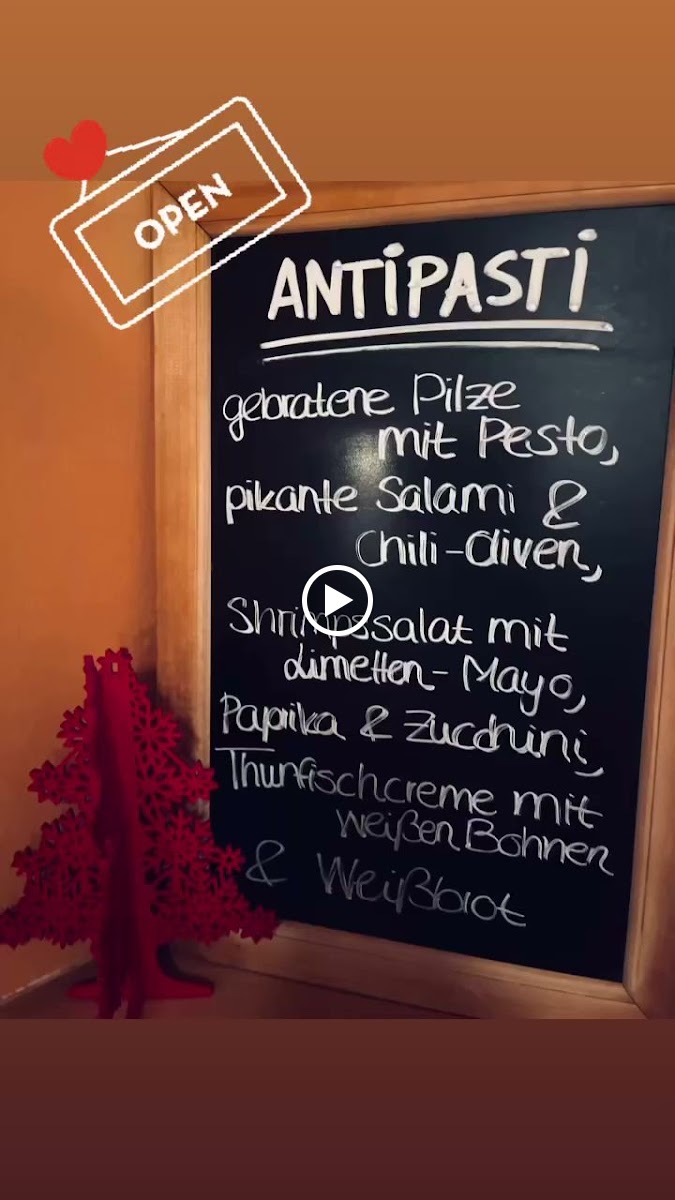 OPEN
ANTIPASTI
gebratene Pilze
mit Pesto,
pikante Salami &
Chili-Oliven,
Shrimpssalat mit
Limetten-Mayo,
Paprika & Zucchini,
Thunfischcreme mit
weißen Bohnen
& Weißbrot